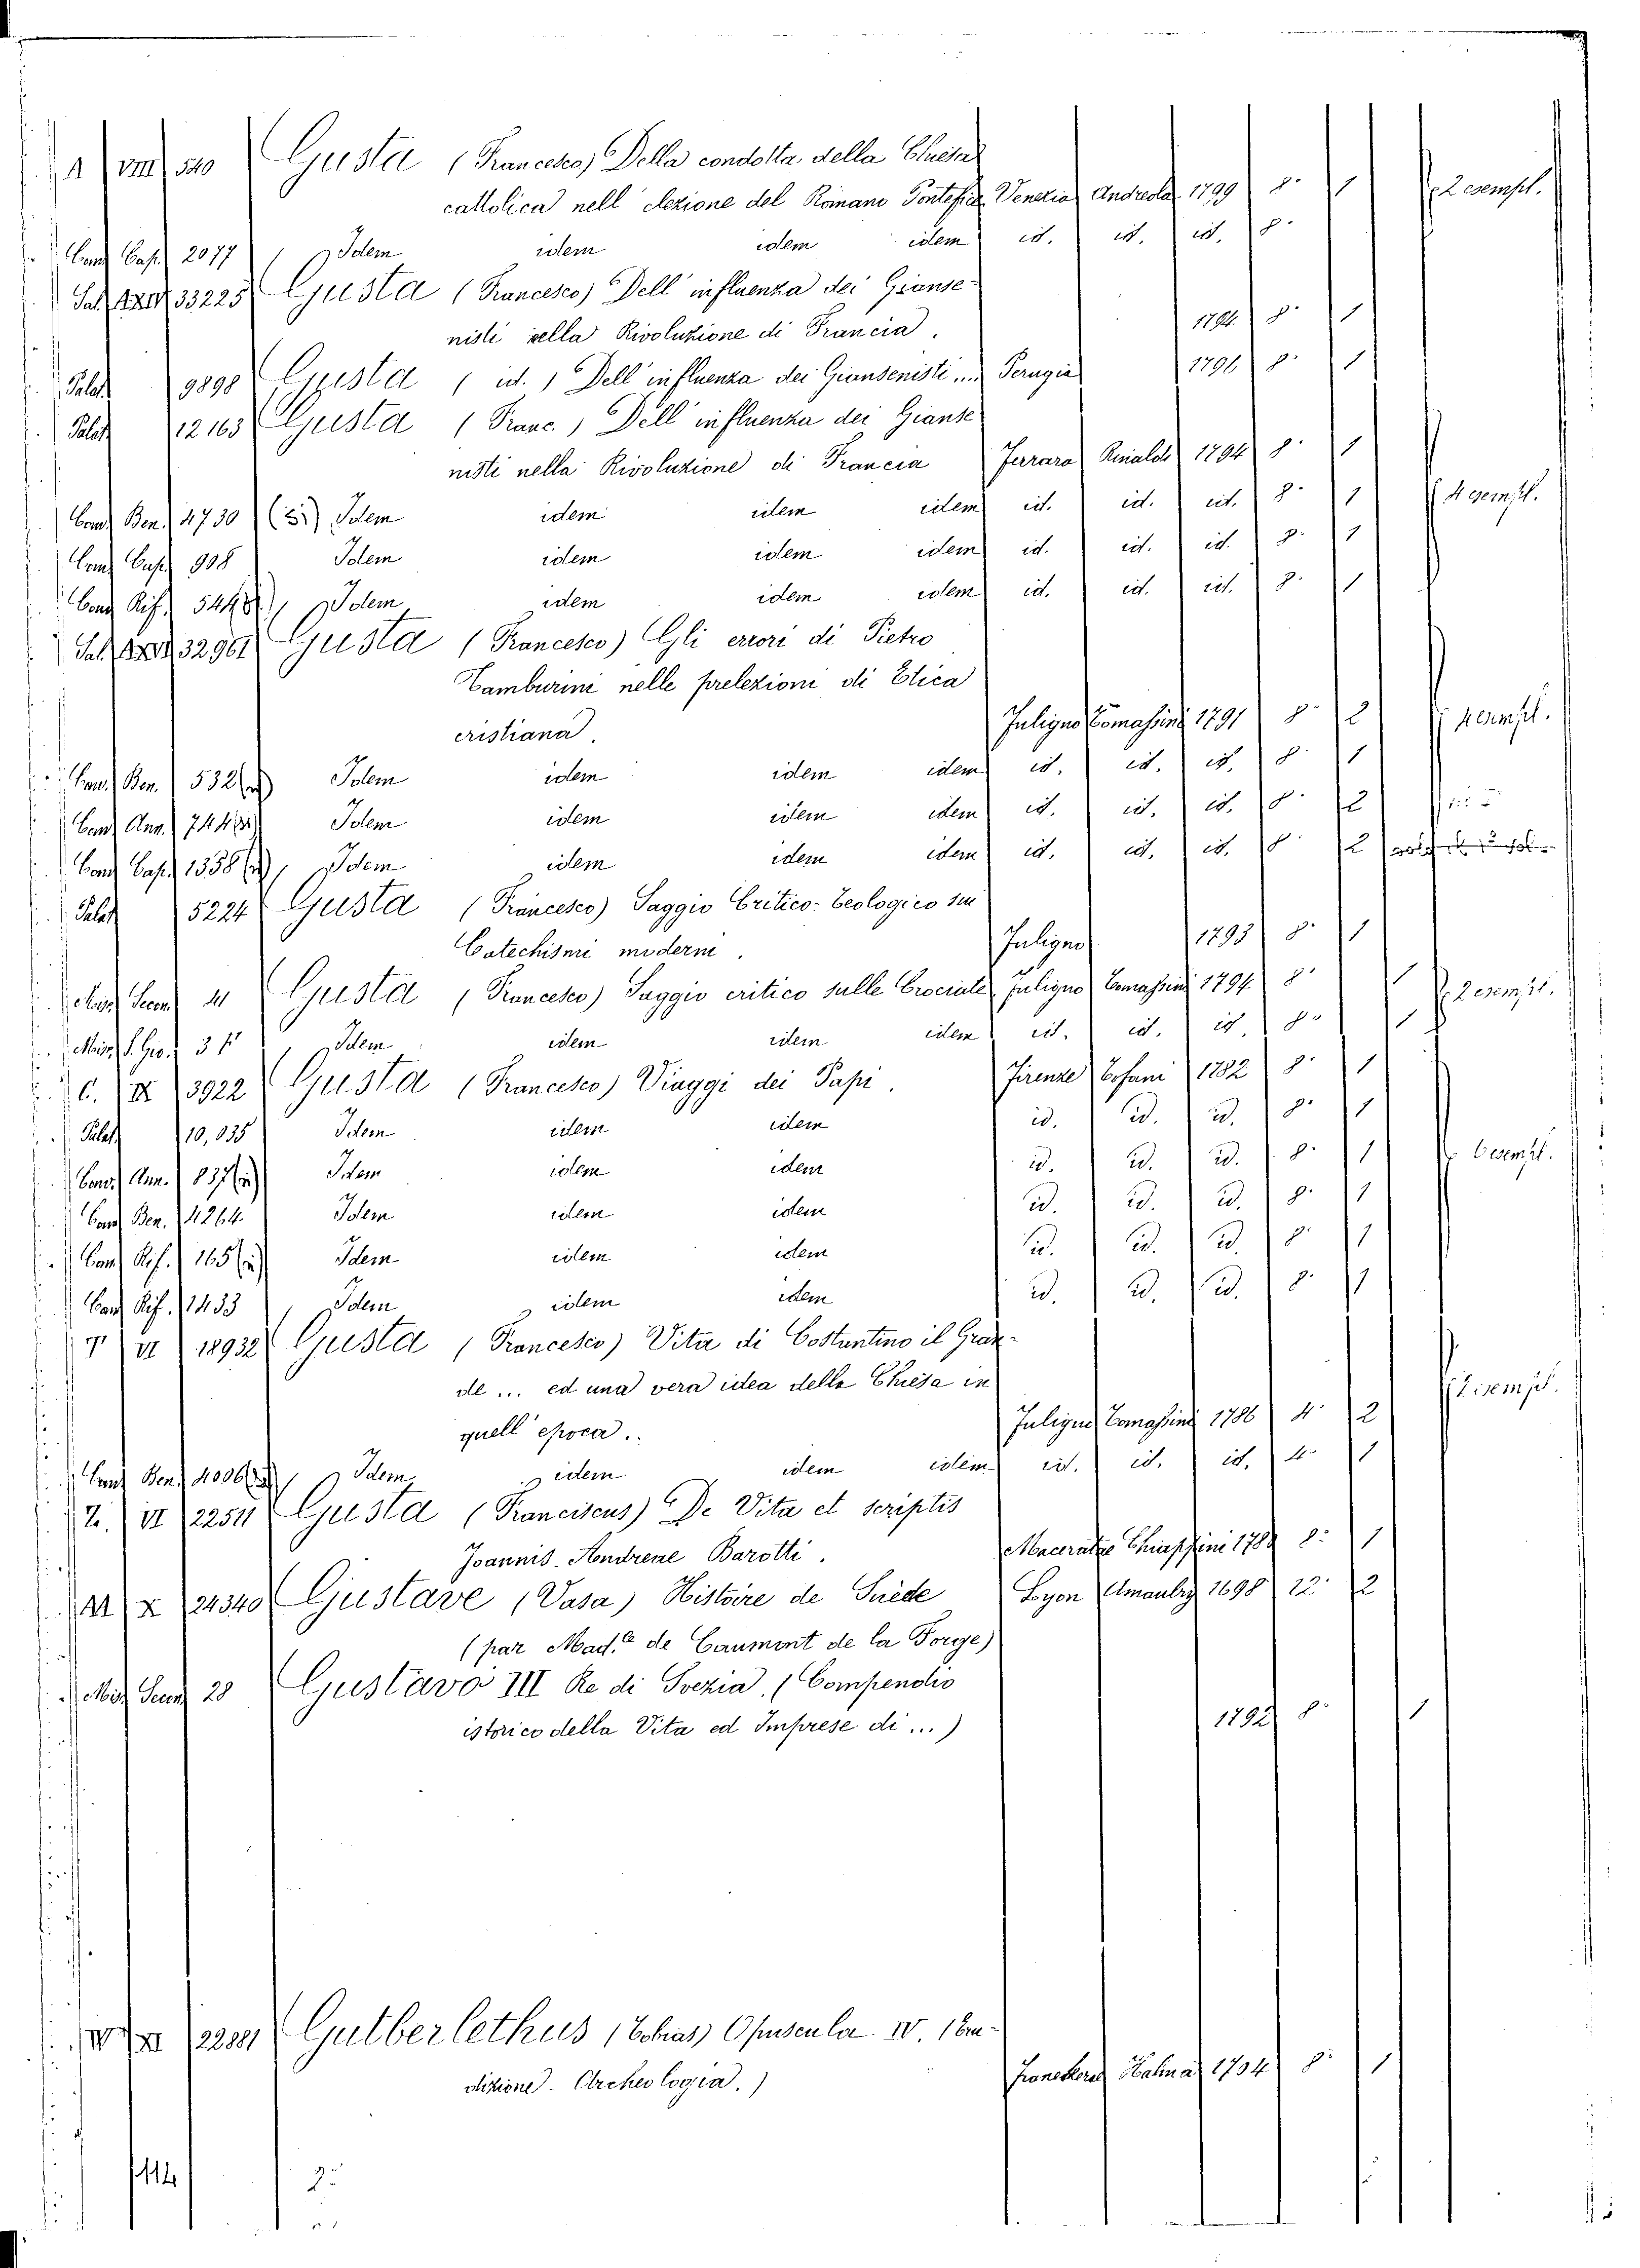 A VIII 540 Gusta (Francesco) Della condotta della Chiesa
cattolica nell elezione del Romano Pontefice Venezia Andreola 1799 8° 1 2 esempl.
Cand Cap. 2077 Idem idem idem idem id. id. id. 8°
Sal. 33225 Gusta (Francesco) Dell' influenza dei Gianse-
nisti nella Rivoluzione di Francia. 1794 8° 1
Palat. 9898 Gusta (id.) Dell' influenza dei Giansenisti ... Perugia 1796 8° 1
Palat. 12163 Gusta (Franc.) Dell' influenza dei Gianse
nisti nella Rivoluzione di Francia Ferrara Rinaldi 1794 8° 1
Cand Ben. 4730 Idem idem idem idem id. id. id. 8° 1 4 esempl.
Cand Cap. 908 Idem idem idem idem id. id. id. 8° 1
Cand Rif. 5448 Idem idem idem idem id. id. id. 8° 1
Sal. 32961 Gusta (Francesco) Gli errori di Pietro
Tamburini nelle prelezioni di Etica
cristiana. Fuligno Tomassini 1791 8° 2 esempl.
Cand Ben. 532 Idem idem idem idem id. id. id. 8° 1
Cand Ann. 744 Idem idem idem idem id. id. id. 8° 2
Cand Cap. 1358 Idem idem idem idem id. id. id. 8° 2
Palat 5224 Gusta (Francesco) Saggio Critico-Teologico sui
Catechismi moderni. Fuligno 1793 8° 1
Gusta (Francesco) Saggio critico sulle Crociate Fuligno Tomassini 1794 8° 1 2 esempl.
S. Gio. 31 Idem idem idem idem id. id. id. 8° 1
C. IX 3922 Gusta (Francesco) Viaggi dei Papi. Firenze Tofani 1782 8° 1
Palat. 10,035 Idem idem idem id. id. id. 8° 1
Cand Ann. 837 Idem idem idem id. id. id. 8° 1 6 esempl.
Cand Ben. 4264 Idem idem idem id. id. id. 8° 1
Cand Rif. 165 Idem idem idem id. id. id. 8° 1
Cand Rif. 1433 Idem idem idem id. id. id. 8° 1
T VI 18932 Gusta (Francesco) Vita di Costantino il Gran-
de ... ed una vera idea della Chiesa in 2 esempl.
quell' epoca. Fuligno Tomassini 1786 4° 2
Cand Ben. 4006 Idem idem idem idem id. id. id. 4° 1
Z. VI 22511 Gusta (Franciscus) De Vita et scriptis
Joannis-Andreae Barotti. Maceratae 8° 1
M X 24340 Gustave (Vasa) Histoire de Suède Lyon Amaulry 1698 12° 2
(par Mad.e de Caumont de la Force)
28 Gustavo III Re di Svezia. (Compendio
istorico della Vita ed Imprese di ...) 1792 8° 1
22881 Gutberlethus (Tobias) Opuscula IV. (Eru-
dizione - Archeologia.) Halma 1704 8° 1
114